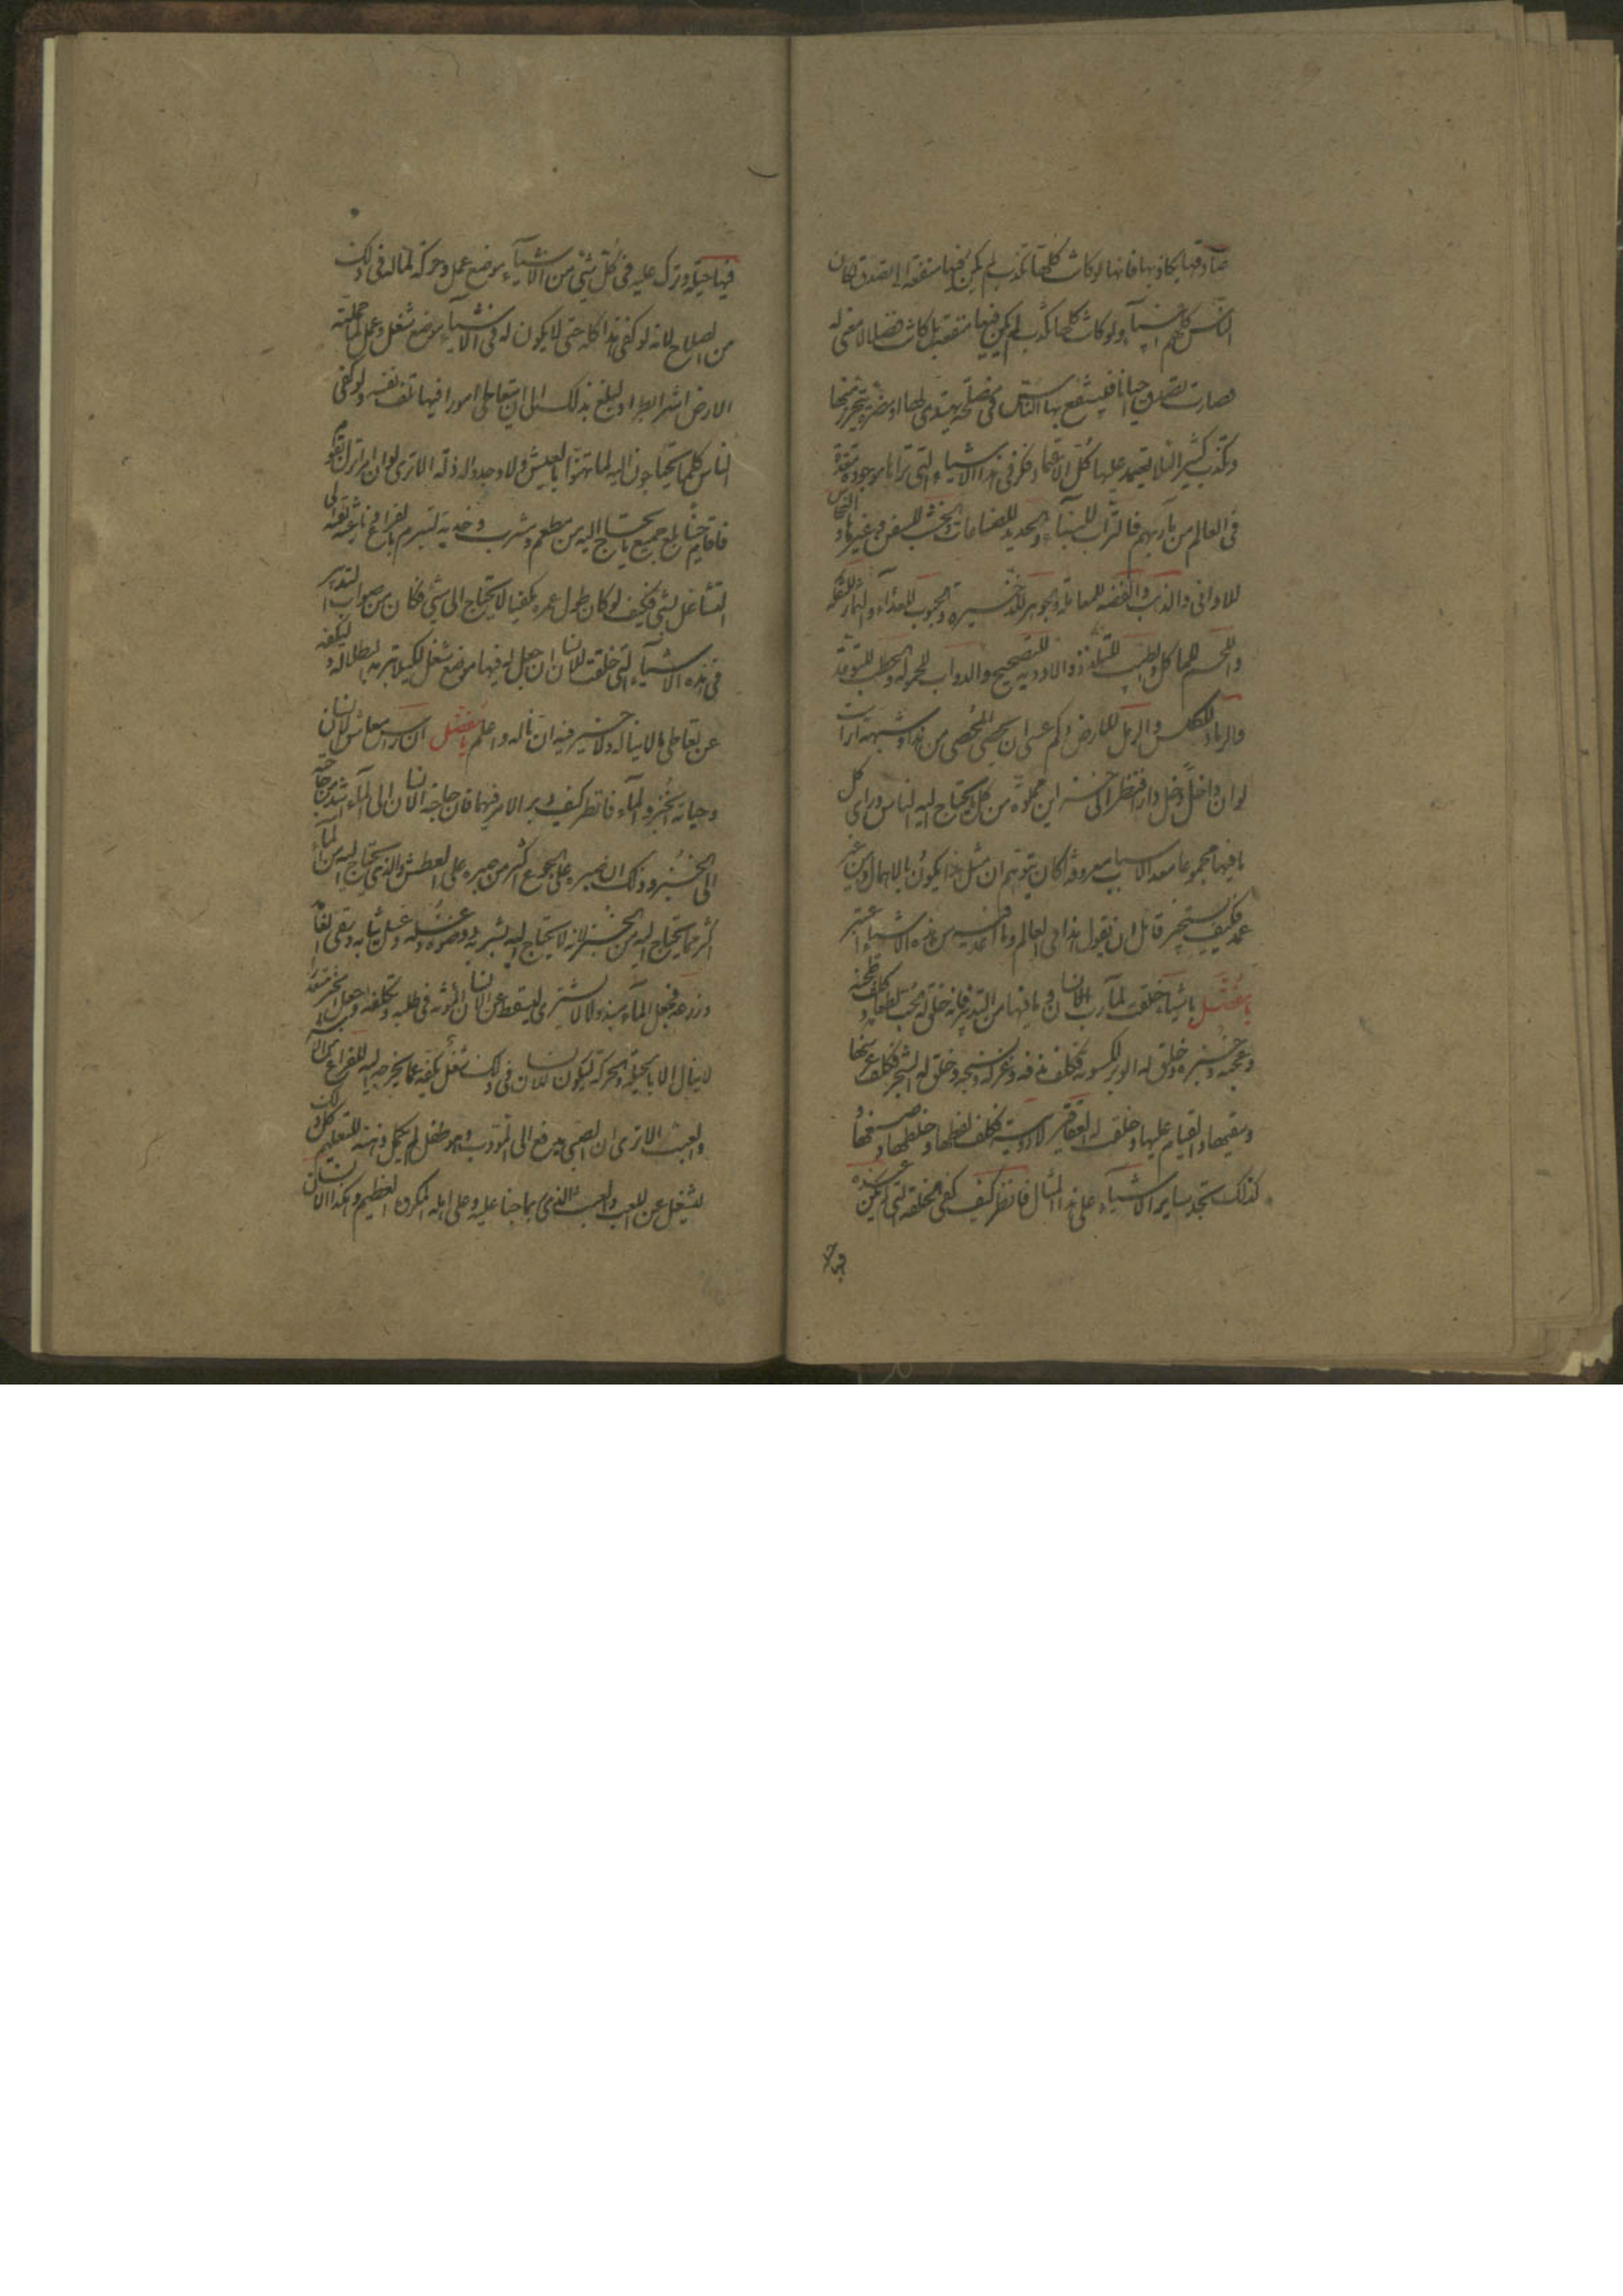 صادقها بكاذبها فانها لو كانت كلها تكذب لم يكن فيها منفعة او تصدق لكان
الناس كلهم انبياء ولو كانت كلها تكذب لم يكن فيها منفعة بل كانت فضلا لا معنى له
فصارت تصدق احيانا فينتفع بها الناس فى مصلحة يهتدى لها او مضرة يتحرز منها
وتكذب كثيرا لئلا يعتمد عليها كل الاعتماد فكر فى هذه الاشياء التى تراها موجودة معدة
فى العالم من مآربهم فالتراب للبناء والحديد للصناعات والخشب للسفن وغيرها والنحاس
للاوانى والذهب والفضة للمعاملة والجوهر للذخيرة والحبوب للغذاء والثمار للتفكه
واللحم للماكل والطيب للتلذذ والادوية للتصحيح والدواب للحمولة والحطب للتوقد
والرماد للكلس والرمل للارض وكم عسى ان يحصى المحصى من هذا وشبهه ارايت
لو ان داخلا دخل دارا فنظر الى خزائن مملوة من كل ما يحتاج اليه الناس وراى كل
ما فيها مجموعا معدا لاسباب معروفة اكان يتوهم ان مثل هذا يكون بالاهمال ومن غير
عمد فكيف يستجيز قائل ان يقول هذا فى العالم وما اعد فيه من هذه الاشياء اعتبر
يا مفضل باشياء خلقت لمآرب الانسان وما فيها من التدبير فانه خلق له الحب لطعامه وكلف طحنه
وعجنه وخبزه وخلق له الوبر لكسوته فكلف ندفه وغزله ونسجه وخلق له الشجر فكلف غرسها
وسقيها والقيام عليها وخلقت له العقاقير لادويته فكلف لقطها وخلطها وصنعها و
كذلك تجد ساير الاشياء على هذا المثال فانظر كيف كفى الخلقة التى لم يكن عنده
فيها حيلة وترك عليه فى كل شئ من الاشياء موضع عمل وحركة لما له فى ذلك
من الصلاح لانه لو كفى هذا كله حتى لا يكون له فى الاشياء موضع شغل وعمل لما حملته
الارض اشرا وبطرا ولبلغ به ذلك الى ان يتعاطى امورا فيها تلف نفسه ولو كفى
الناس كلما يحتاجون اليه لما تهنوا بالعيش ولا وجدوا له لذة الا ترى لو ان امرأ نزل بقوم
فاقام حينا بلغ جميع ما يحتاج اليه من مطعم ومشرب وخدمة لتبرم بالفراغ ونازعته نفسه الى
التشاغل بشئ فكيف لو كان طول عمره مكفيا لا يحتاج الى شئ فكان من صواب التدبير
فى هذه الاشياء التى خلقت للانسان ان جعل له فيها موضع شغل لكيلا تبرمه البطالة ولتكفه
عن تعاطى ما لا يناله ولا خير فيه ان ناله واعلم يا مفضل ان راس معاش الانسان
وحياته الخبز والماء فانظر كيف دبر الامر فيهما فان حاجة الانسان الى الماء اشد من حاجته
الى الخبز وذلك ان صبره على الجوع اكثر من صبره على العطش والذى يحتاج اليه من الماء
اكثر مما يحتاج اليه من الخبز لانه لا يحتاج اليه لشربه ووضوءه وغسله وغسل ثيابه وسقى انعامه
وزرعه فجعل الماء مبذولا لا يشترى لتسقط عن الانسان المؤنة فى طلبه وتكلفه وجعل الخبز متعذرا
لا ينال الا بالحيلة والحركة ليكون للانسان فى ذلك شغل يكفه عما يخرجه اليه الفراغ من الاشر
والعبث الا ترى ان الصبى يدفع الى المؤدب وهو طفل لم يكمل ذاته للتعليم كل ذلك
ليشتغل عن اللعب والعبث الذى ربما جنيا عليه وعلى اهله المكروه العظيم وهكذا الانسان